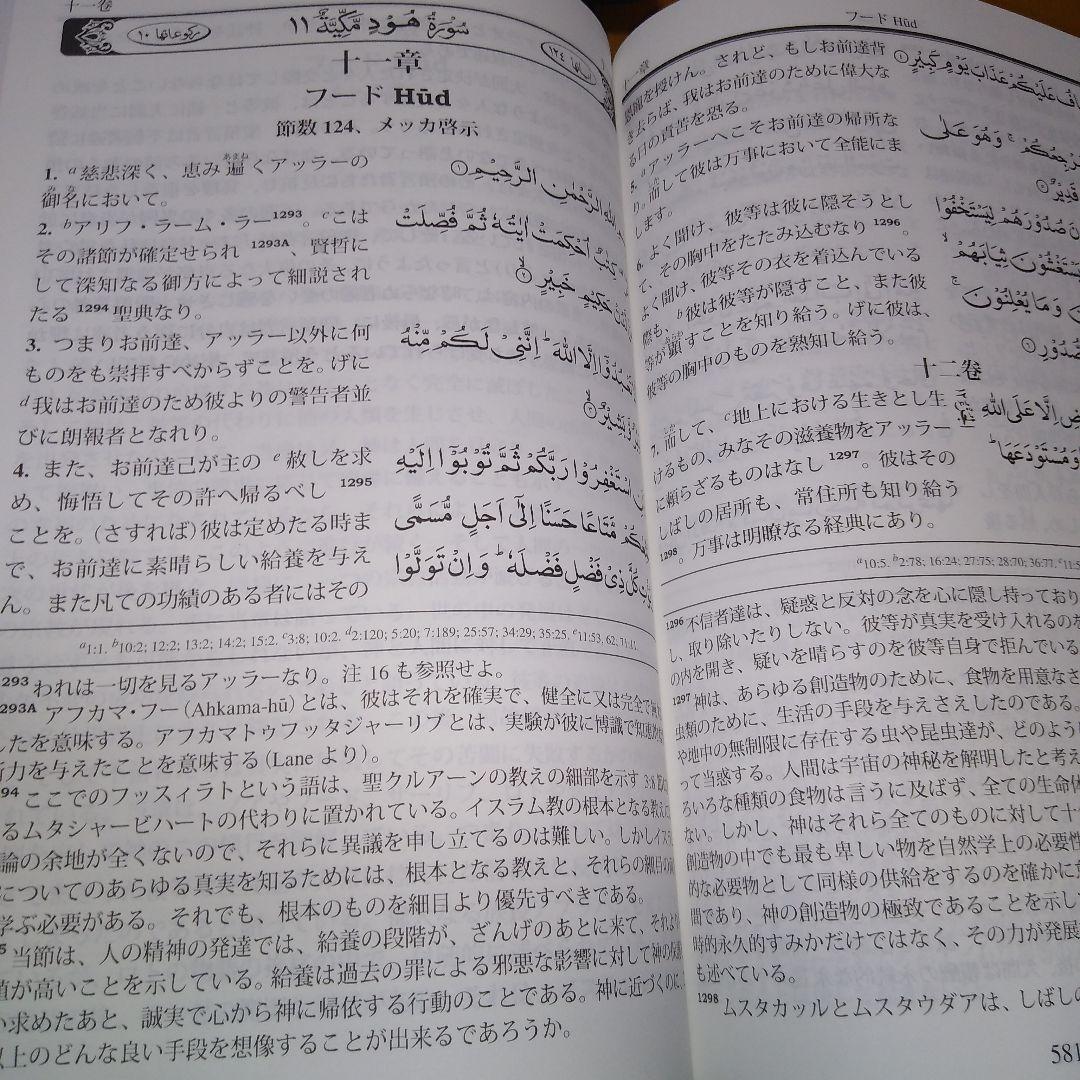 十一卷
سُوْرَةُ هُوْدٍ مَّكِّيَّةٌ ١١
十一章
フード Hūd
節数 124、メッカ啓示
1. a慈悲深く、恵み遍くアッラーの
御名において。
2. bアリフ・ラーム・ラー1293。cこは
その諸節が確定せられ 1293A、賢哲に
して深知なる御方によって細説され
たる 1294 聖典なり。
3. つまりお前達、アッラー以外に何
ものをも崇拝すべからずことを。げに
d我はお前達のため彼よりの警告者並
びに朗報者となれり。
4. また、お前達己が主の e赦しを求
め、悔悟してその許へ帰るべし 1295
ことを。(さすれば) 彼は定めたる時ま
で、お前達に素晴らしい給養を与え
ん。また凡ての功績のある者にはその
اللهِ الرَّحْمٰنِ الرَّحِيْمِ
كِتٰبٌ اُحْكِمَتْ اٰيٰتُهٗ ثُمَّ فُصِّلَتْ
حَكِيْمٍ خَبِيْرٍ
اِلَّا اللهَ ؕ اِنَّنِيْ لَكُمْ مِّنْهُ
وَّبَشِيْرٌ
اسْتَغْفِرُوْا رَبَّكُمْ ثُمَّ تُوْبُوْۤا اِلَيْهِ
مَّتَاعًا حَسَنًا اِلٰۤى اَجَلٍ مُّسَمًّى
كُلَّ ذِيْ فَضْلٍ فَضْلَهٗ ؕ وَاِنْ تَوَلَّوْا
a1:1. b10:2; 12:2; 13:2; 14:2; 15:2. c3:8; 10:2. d2:120; 5:20; 7:189; 25:57; 34:29; 35:25. e11:53, 62,
1293 われは一切を見るアッラーなり。注 16 も参照せよ。
1293A アフカマ・フー (Ahkama-hū) とは、彼はそれを確実で、健全に又は完全で
したを意味する。アフカマトゥフッタジャーリブとは、実験が彼に博識で知
力を与えたことを意味する (Lane より)。
94 ここでのフッスィラトという語は、聖クルアーンの教えの細部を示す 3:8
るムタシャービハートの代わりに置かれている。イスラム教の根本となる教え
論の余地が全くないので、それらに異議を申し立てるのは難しい。しかしイス
についてのあらゆる真実を知るためには、根本となる教えと、それらの細目の
学ぶ必要がある。それでも、根本のものを細目より優先すべきである。
当節は、人の精神の発達では、給養の段階が、ざんげのあとに来て、それより
値が高いことを示している。給養は過去の罪による邪悪な影響に対して神の
求めたあと、誠実で心から神に帰依する行動のことである。神に近づくのに、
以上のどんな良い手段を想像することが出来るであろうか。
フード Hūd
十一章
恩顧を授けん。されど、もしお前達背
き去らば、我はお前達のために偉大な
る日の責苦を恐る。
5. aアッラーへこそお前達の帰所な
り。而して彼は万事において全能にま
します。
6. よく聞け、彼等は彼に隠そうとし
て、その胸中をたたみ込むなり 1296。
よく聞け、彼等その衣を着込んでいる
際も、b彼は彼等が隠すこと、また彼
等が顕すことを知り給う。げに彼は、
彼等の胸中のものを熟知し給う。
十二卷
7. 而して、c地上における生きとし生
けるもの、みなその滋養物をアッラー
に頼らざるものはなし 1297。彼はその
しばしの居所も、常住所も知り給う
1298。万事は明瞭なる経典にあり。
عَلَيْكُمْ عَذَابَ يَوْمٍ كَبِيْرٍ
مَرْجِعُكُمْ ۚ وَهُوَ عَلٰى
قَدِيْرٌ
صُدُوْرَهُمْ لِيَسْتَخْفُوْا
يَسْتَغْشُوْنَ ثِيَابَهُمْ ۙ
وَمَا يُعْلِنُوْنَ ۚ
الصُّدُوْرِ
اِلَّا عَلَى اللهِ
وَمُسْتَوْدَعَهَا ؕ
a10:5. b2:78; 16:24; 27:75; 28:70; 36:77.
1296 不信者達は、疑惑と反対の念を心に隠し持っており
し、取り除いたりしない。彼等が真実を受け入れるのを
の内を開き、疑いを晴らすのを彼等自身で拒んでいる
1297 神は、あらゆる創造物のために、食物を用意なさ
虫類のために、生活の手段を与えさえしたのである。
や地中の無制限に存在する虫や昆虫達が、どのように
って当惑する。人間は宇宙の神秘を解明したと考え
るいろな種類の食物は言うに及ばず、全ての生命体
ない。しかし、神はそれら全てのものに対して十
創造物の中でも最も卑しい物を自然学上の必要性
的な必要物として同様の供給をするのを確かに
間であり、神の創造物の極致であることを示し
時的永久的すみかだけではなく、その力が発展
も述べている。
1298 ムスタカッルとムスタウダアは、しばしの
581